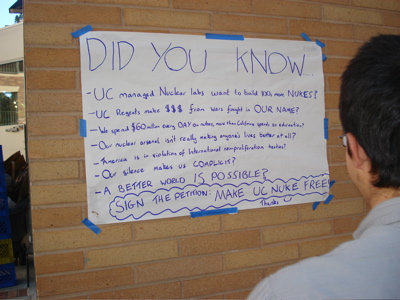 DID YOU KNOW...
- UC managed Nuclear labs want to build 100s more NUKES?
- UC Regents make $$$ from wars fought in OUR NAME?
- We spend $60 million every DAY on nukes, more than California spends on education?
- Our nuclear arsenal isn't really making anyone's lives better at all?
- America is in violation of International non-proliferation treaties?
- Our silence makes us COMPLICIT?
- A BETTER WORLD IS POSSIBLE?
SIGN THE PETITION: MAKE UC NUKE FREE!
Thanks